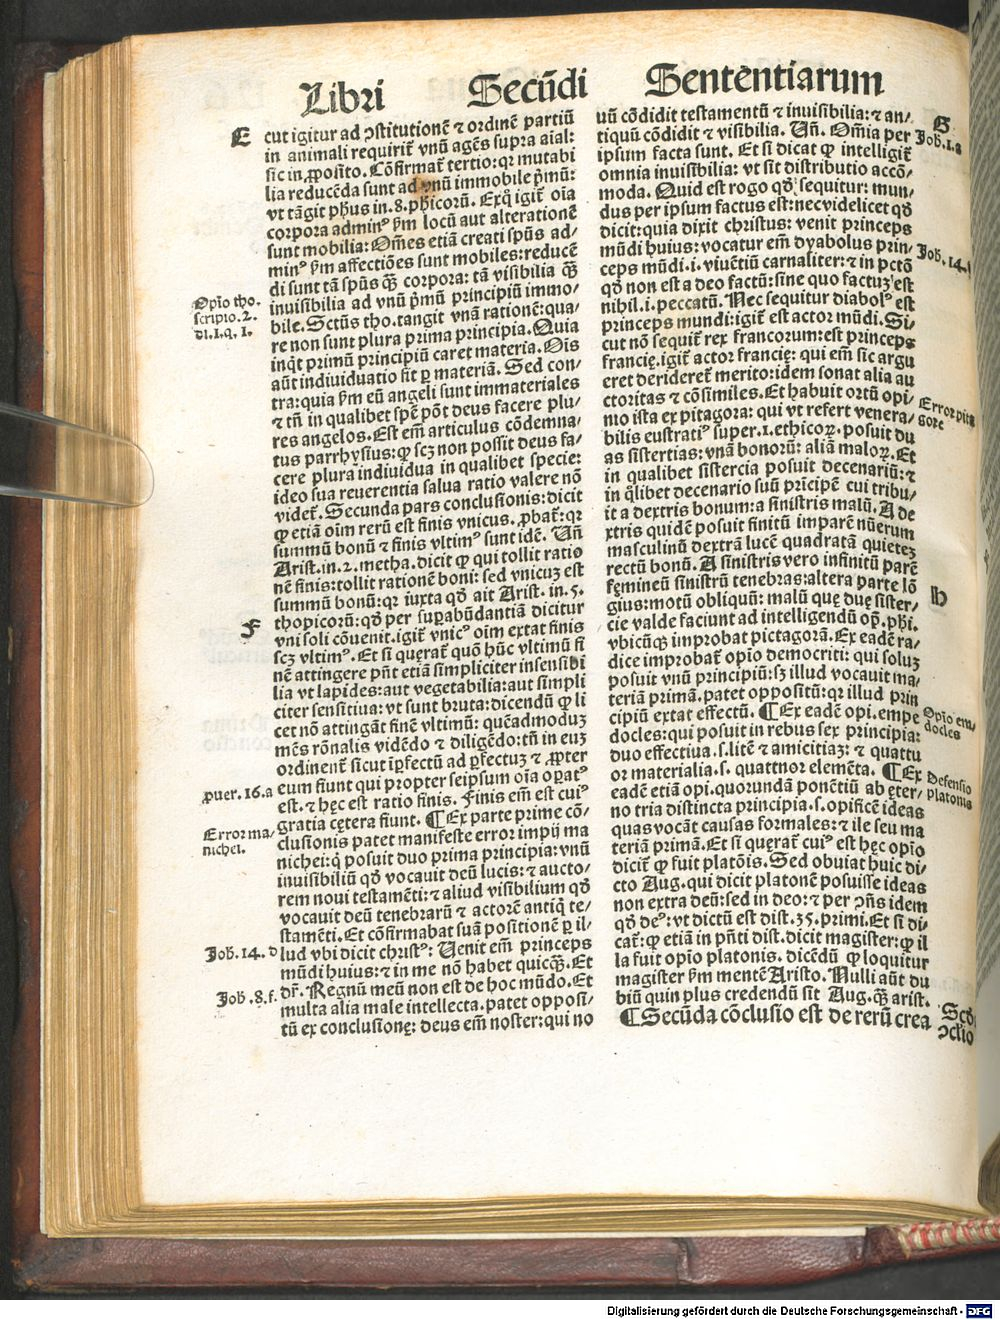 Libri Secūdi Sententiarum
E
cut igitur ad ꝯstitutionē ⁊ ordinē partiū
in animali requirit̄ vnū agēs supra aial:
sic in ꝓposito. Cōfirmat̄ tertio: qꝛ mutabi
lia reducēda sunt ad vnū immobile pͥmū:
vt tāgit ph̄us in .8. ph̄icorū. Exq̄ igit̄ oīa
corpora adminꝰ ẜm locū aut alterationē
sunt mobilia: Om̄es etiā creati spūs ad/
minꝰ ẜm affectiōes sunt mobiles: reducē
di sunt tā spūs qͣ̄ corpora: tā visibilia qͣ̄
invisibilia ad vnū pͥmū principiū immo/
bile. Sctūs tho. tangit vnā rationē: qua/
re non sunt plura prima principia. Quia
inqͥt primū principiū caret materia. Oīs
aūt indiuiduatio fit ꝑ materiā. Sed con/
tra: quia ẜm eū angeli sunt immateriales
⁊ tn̄ in qualibet spē pōt deus facere plu/
res angelos. Est em̄ articulus cōdemna/
tus parrhysius: ꝙ scꝫ non possit deus fa/
cere plura indiuidua in qualibet specie:
ideo sua reuerentia salua ratio valere nō
videt̄. Secunda pars conclusionis: dicit
ꝙ etiā oīm rerū est finis vnicus. ꝓbat̄: qꝛ
summū bonū ⁊ finis vltimꝰ sunt idē. Vn̄
Arist. in. 2. metha. dicit ꝙ qui tollit ratio
nē finis: tollit rationē boni: sed vnicuꝫ est
summū bonū: qꝛ iuxta qd̄ ait Arist. in .5.
thopicorū: qd̄ per suꝑabūdantiā dicitur
vni soli cōuenit. igit̄ vnicꝰ oīm extat finis
scꝫ vltimꝰ. Et si quęrat̄ quō hūc vltimū fi
nē attingere pn̄t etiā simpliciter insensibi
lia vt lapides: aut vegetabilia: aut simpli
citer sensitiua: vt sunt bruta: dicendū ꝙ li
cet nō attingāt finē vltimū: quēadmoduꝫ
mēs rōnalis vidēdo ⁊ diligēdo: tn̄ in euꝫ
ordinent̄ sicut īperfectū ad ꝑfectuꝫ ⁊ ꝓpter
eum fiunt qui propter seipsum oīa opat̉ꝰ
est. ⁊ hęc est ratio finis. Finis em̄ est cuiꝰ
gratia cętera fiunt. ¶Ex parte prime cō/
clusionis patet manifeste error impij ma
nichei: q̇ posuit duo prima principia: vnū
inuisibiliū qd̄ vocauit deū lucis: ⁊ aucto/
rem noui testamēti: ⁊ aliud visibilium qd̄
vocauit deū tenebrarū ⁊ actorē antiq̇ te/
stamēti. Et cōfirmabat suā positionē ꝑ il/
lud vbi dicit christꝰ: Venit em̄ princeps
mūdi huius: ⁊ in me nō habet quicqͣ̄. Et
dr̄. Regnū meū non est de hoc mūdo. Et
multa alia male intellecta. patet opposi/
tū ex conclusionę: deus em̄ noster: qui no
Opīo tho.
scripto. 2.
di. 1. q. 1.
F
ꝓuer. 16. a
Error ma/
nichei.
Joh. 14. d
Joh .8. f.
uū cōdidit testamentū ⁊ inuisibilia: ⁊ an/
tiquū cōdidit ⁊ visibilia. Vn̄. Om̄ia per
ipsum facta sunt. Et si dicat ꝙ intelligit̄
omnia inuisibilia: vt sit distributio accō/
moda. Quid est rogo qd̄ sequitur: mun/
dus per ipsum factus est: nec videlicet qd̄
dicit: quia dixit christus: venit princeps
mūdi huius: vocatur em̄ dyabolus prin/
ceps mūdi .i. viuētiū carnaliter: ⁊ in pctō
qd̄ non est a deo factū: sine quo factuꝫ est
nihil .i. peccatū. Nec sequitur diabolꝰ est
princeps mundi: igit̄ est actor mūdi. Si/
cut nō sequit̄ rex francorum: est princeps
francię. igit̄ actor francię: qui em̄ sic argu
eret derideret̄ merito: idem sonat alia au
ctoritas ⁊ cōsimiles. Et habuit ortū opi/
nio ista ex pitagora: qui vt refert venera/
bilis eustratiꝰ super .1. ethicoꝝ. posuit du
as sistertias: vnā bonorū: aliā maloꝝ. Et
in qualibet sistercia posuit decenariū: ⁊
in q̇libet decenario suū prīcipē cui tribu/
it a dextris bonum: a sinistris malū. A de
xtris quidē posuit finitū imparē nūerum
masculinū dextrā lucē quadratā quieteꝫ
rectū bonū. A sinistris vero infinitū parē
fęmineū sinistrū tenebras: altera parte lō
gius: motū obliquū: malū quę duę sister/
cie valde faciunt ad intelligendū op̄. ph̄i.
vbicūqꝫ improbat pictagorā. Ex eadē ra/
dice improbat̄ opīo democriti: qui soluꝫ
posuit vnū principiū: sꝫ illud vocauit ma/
teriā primā. patet oppositū: qꝛ illud prin
cipiū extat effectū. ¶Ex eadē opi. empe
docles: qui posuit in rebus sex principia:
duo effectiua .s. litē ⁊ amicitiaꝫ: ⁊ quattu
or materialia .s. quattnor elemēta. ¶Ex
eadē etiā opi. quorundā ponētiū ab ęter/
no tria distincta principia .s. opificē ideas
quas vocāt causas formales: ⁊ ile seu ma
teriā primā. Et si quęrat̄ cuiꝰ est hęc opīo
dicit̄ ꝙ fuit platōis. Sed obuiat huic di/
cto Aug. qui dicit platonē posuisse ideas
non extra deū: sed in deo: ⁊ per ꝯn̄s idem
qd̄ deꝰ: vt dictū est dist. 35. primi. Et si di/
cat̄: ꝙ etiā in pn̄ti dist. dicit magister: ꝙ il
la fuit opīo platonis. dicēdū ꝙ loquitur
magister ẜm mentē Aristo. Nulli aūt du
biū quin plus credendū sit Aug. qͣ̄ arist.
¶Secūda cōclusio est de rerū crea
G
Joh. 1. a
Joh. 14.
Error pita
gore
H
Opīo em/
docles
Defensio
platonis
Scd̄a
ꝯclio
Digitalisierung gefördert durch die Deutsche Forschungsgemeinschaft - DFG